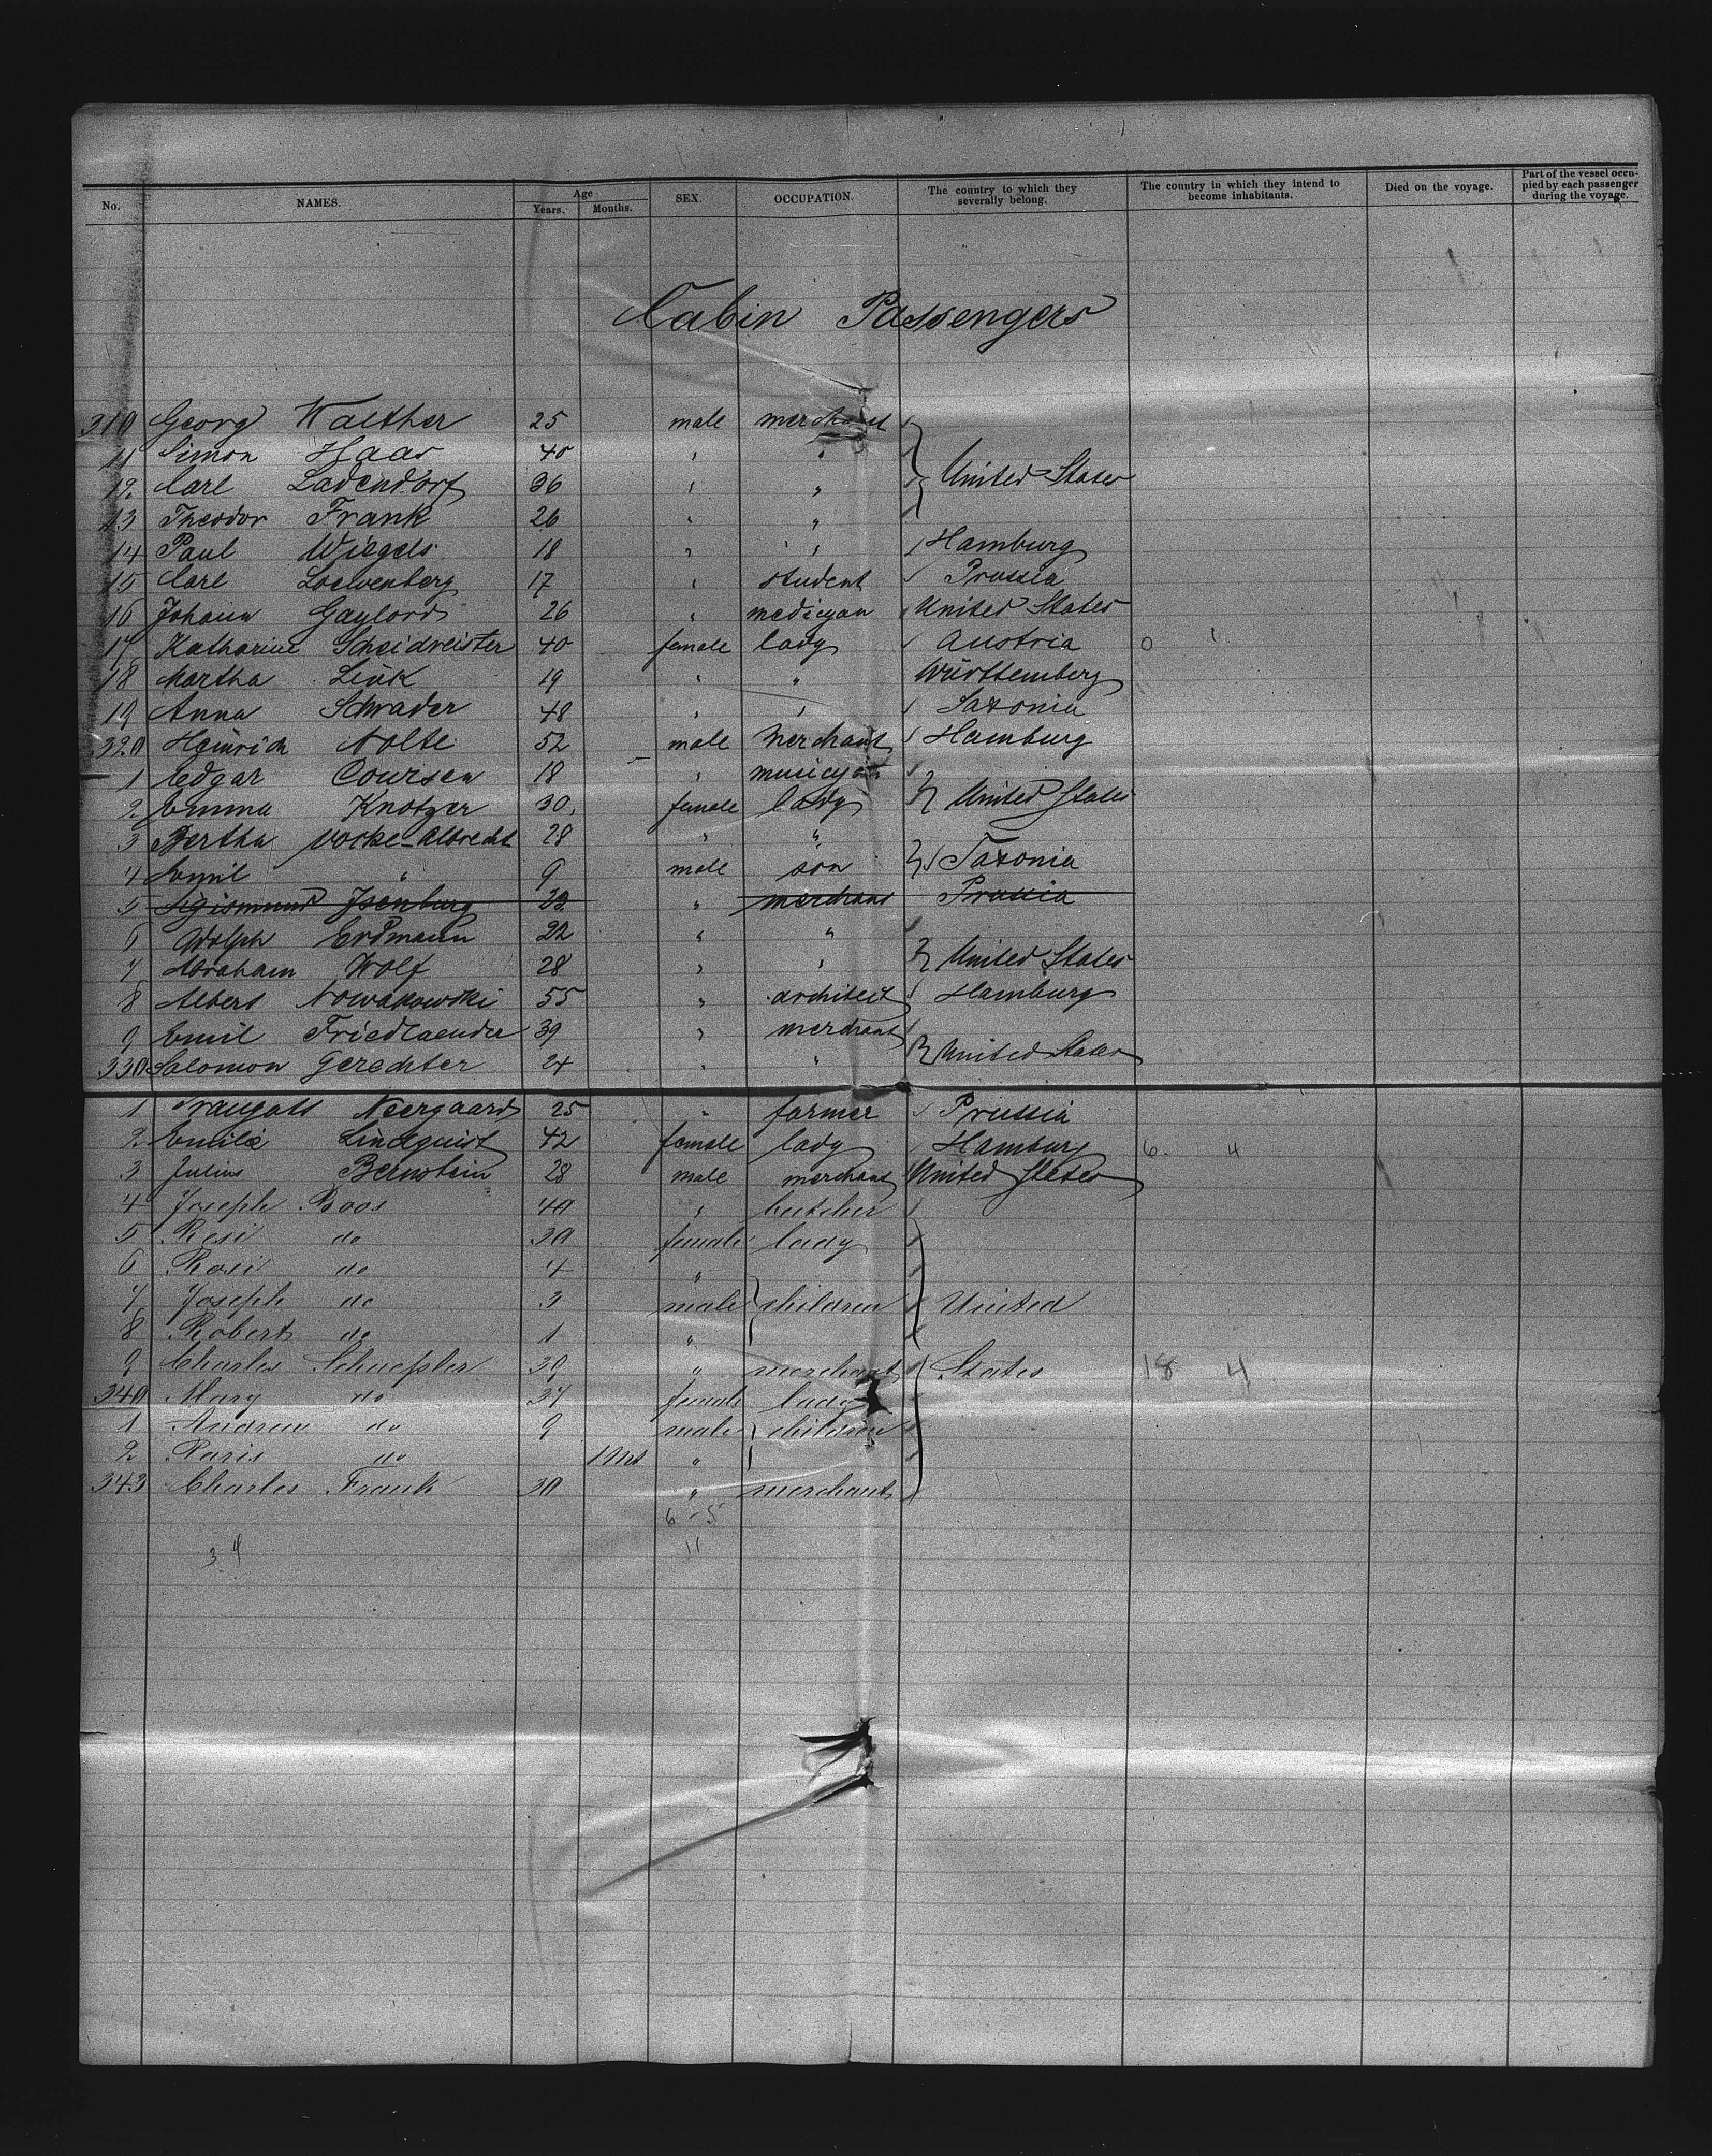 No. NAMES. Age Years. Months. SEX. OCCUPATION. The country to which they severally belong. The country in which they intend to become inhabitants. Died on the voyage. Part of the vessel occupied by each passenger during the voyage.
Cabin Passengers
310 Georg Walther 25 male merchant
11 Simon Haas 40 " "
12 Carl Ladendorf 36 " " United States
13 Theodor Frank 26 " "
14 Paul Wiegels 18 " " Hamburg
15 Carl Loewenberg 17 " student Prussia
16 Johann Gaylord 26 " medicyan United States
17 Katharine Scheidreister 40 female lady Austria 0 1
18 Martha Link 19 " " Württemberg
19 Anna Schrader 48 " " Saxonia
320 Heinrich Nolte 52 male Merchant Hamburg
1 Edgar Coursen 18 " musicyan
2 Emma Knotzer 30 female lady United States
3 Bertha Vocke-Albrecht 28 " "
4 Emil " 9 male son Saxonia
5 Sigismund Isenburg 23 " merchant Prussia
6 Adolph Erdmann 22 " "
7 Abraham Wolf 28 " " United States
8 Albert Nowakowski 55 " architect Hamburg
9 Emil Friedlaender 39 " merchant
330 Salomon Gerechter 24 " " United States
1 Traugott Neergaard 25 " farmer Prussia
2 Emilie Lindquist 42 female lady Hamburg 6 4
3 Julius Bernstein 28 male merchant United States
4 Joseph Boos 40 " butcher
5 Resi do 30 female lady
6 Rosi do 4 "
7 Joseph do 3 male children United
8 Robert do 1 "
9 Charles Schuessler 39 " merchant States 18 4
340 Mary do 37 female lady
1 Andrew do 9 male children
2 Paris do 1 Mt "
343 Charles Frank 30 " merchant
6 - 5
3 4 11